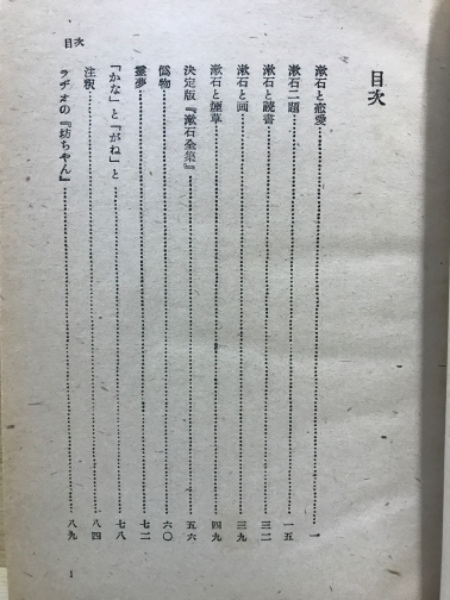 目次
漱石と恋愛……………………一
漱石二題……………………一五
漱石と読書……………………三二
漱石と画……………………三九
漱石と煙草……………………四九
決定版『漱石全集』……………………五六
偽物……………………六〇
霊夢……………………七二
「かな」と「がね」と……………………七八
注釈……………………八四
ラヂオの『坊ちやん』……………………八九
目次
1